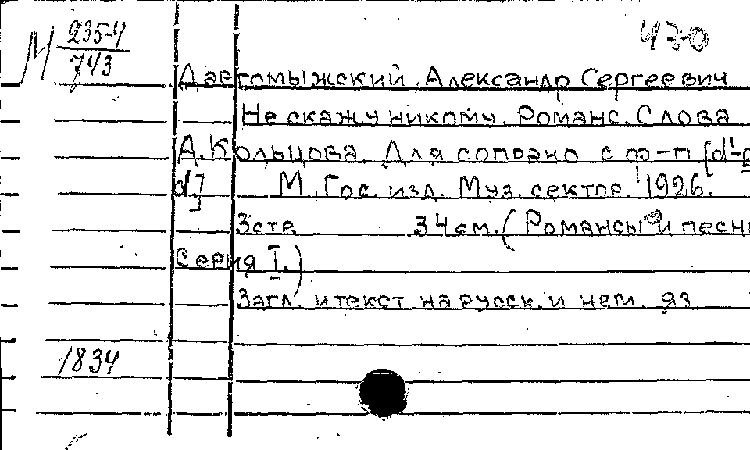 М 235-4
743
430
Даргомыжский, Александр Сергеевич
Не скажу никому. Романс. Слова
А. Кольцова. Для сопрано с ф-п [d¹-
d.] М. Гос. изд. Муз. сектор. 1926.
3 стр. 34 см. (Романсы и песни
Серия I.)
Загл. и текст на русск. и нем. яз
1834